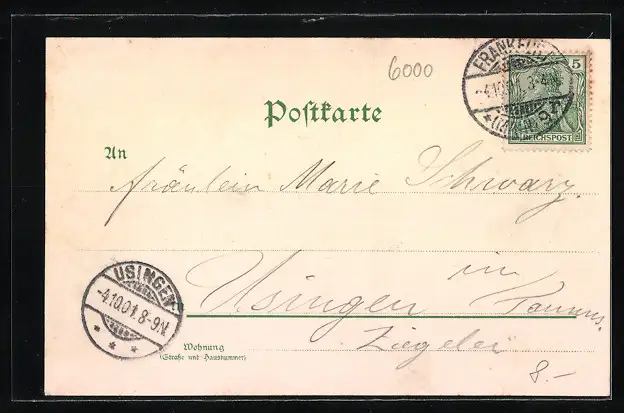 6000
FRANKFURT
-4.10.01. 3-4N.
5
REICHSPOST
Postkarte
An
Fräulein Marie Schwarz.
in
Usingen Taunus.
Ziegelei
USINGEN
-4.10.01. 8-9N.
* * *
Wohnung
(Straße und Hausnummer)
8.-